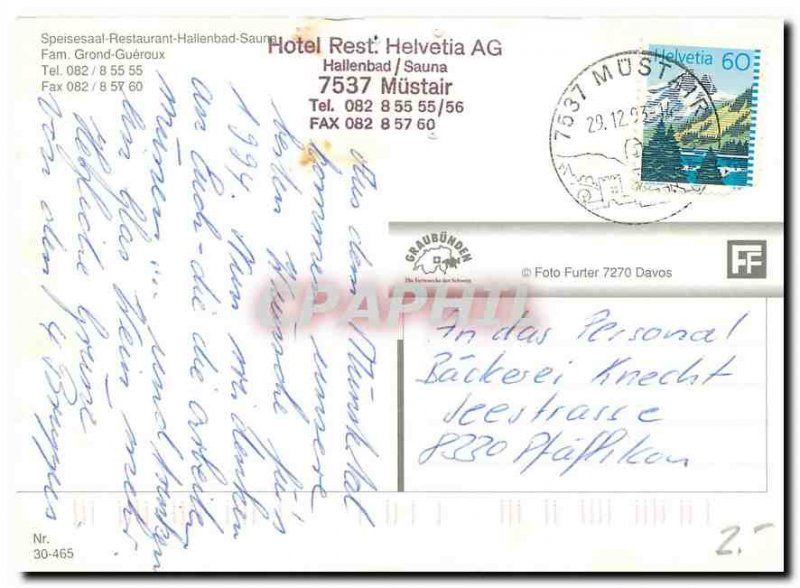 Speisesaal-Restaurant-Hallenbad-Sauna
Fam. Grond-Guéroux
Tel. 082 / 8 55 55
Fax 082 / 8 57 60
Hotel Rest. Helvetia AG
Hallenbad / Sauna
7537 Müstair
Tel. 082 8 55 55/56
FAX 082 8 57 60
7537 MÜSTAIR
29.12.93
Helvetia 60
GRAUBÜNDEN
Die Ferienecke der Schweiz
© Foto Furter 7270 Davos
FF
CPAPHIL
Aus dem Münstertal
kommen unsere
besten Wünsche für's
1994. Wir denken
an Euch - die die arbeiten
müssen u. trinken
ein Glas Wein mehr.
Herzliche Grüsse
von den 4
An das Personal
Bäckerei Knecht
Seestrasse
8330 Pfäffikon
Nr.
30-465
2.-